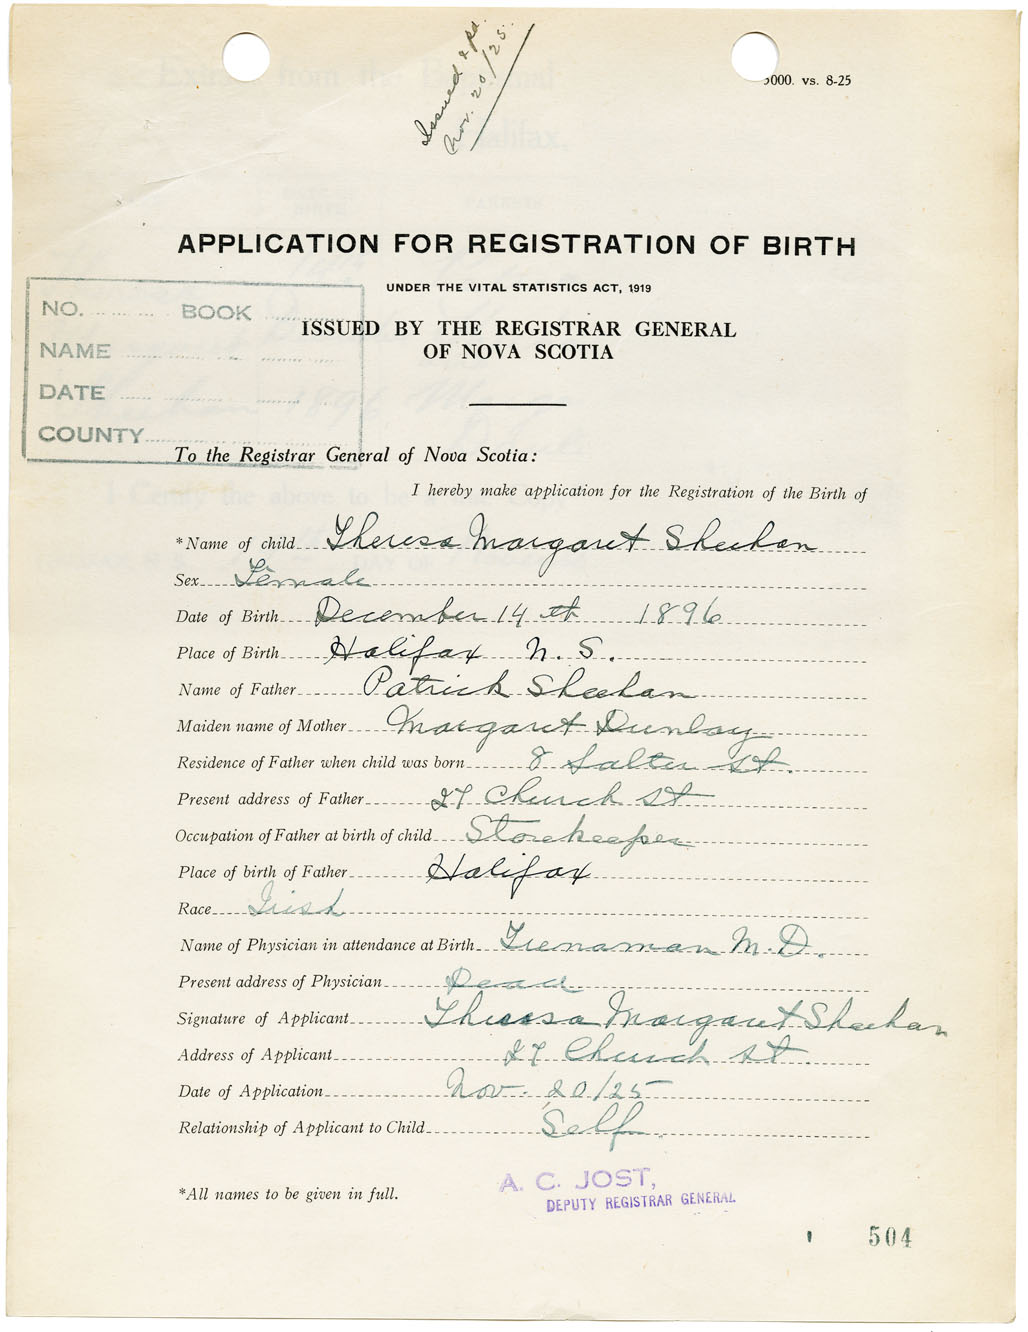 Issued & pd.
Nov. 20/25.
5000. vs. 8-25
APPLICATION FOR REGISTRATION OF BIRTH
UNDER THE VITAL STATISTICS ACT, 1919
ISSUED BY THE REGISTRAR GENERAL
OF NOVA SCOTIA
NO. BOOK
NAME
DATE
COUNTY
To the Registrar General of Nova Scotia:
I hereby make application for the Registration of the Birth of
*Name of child Theresa Margaret Sheehan
Sex Female
Date of Birth December 14th 1896
Place of Birth Halifax N. S.
Name of Father Patrick Sheehan
Maiden name of Mother Margaret Dunlay
Residence of Father when child was born 8 Salter St.
Present address of Father 27 Church St
Occupation of Father at birth of child Storekeeper
Place of birth of Father Halifax
Race Irish
Name of Physician in attendance at Birth Trenaman M.D.
Present address of Physician Dead
Signature of Applicant Theresa Margaret Sheehan
Address of Applicant 27 Church St.
Date of Application Nov. 20/25
Relationship of Applicant to Child Self
*All names to be given in full.
A. C. JOST,
DEPUTY REGISTRAR GENERAL
504